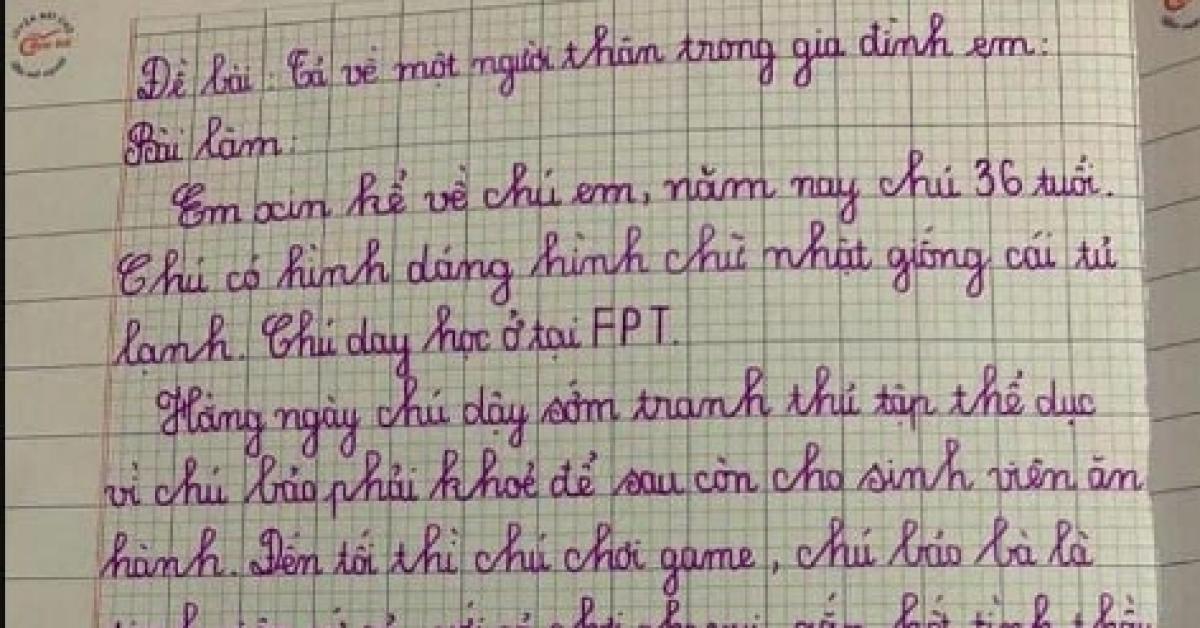 Đề bài: Tả về một người thân trong gia đình em:
Bài làm:
Em xin kể về chú em, năm nay chú 36 tuổi.
Chú có hình dáng hình chữ nhật giống cái tủ
lạnh. Chú dạy học ở tại FPT.
Hằng ngày chú dậy sớm tranh thủ tập thể dục
vì chú bảo phải khoẻ để sau còn cho sinh viên ăn
hành. Đến tối thì chú chơi game, chú bảo bà là